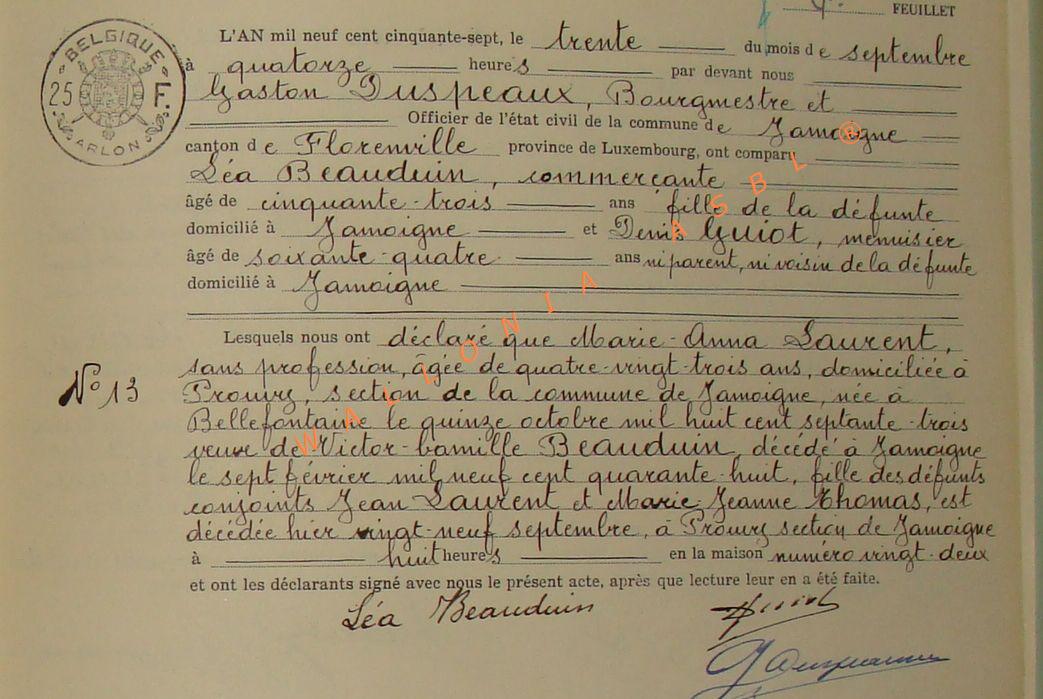 FEUILLET
BELGIQUE
25 F.
ARLON
L'AN mil neuf cent cinquante-sept, le trente du mois de septembre
à quatorze heures par devant nous
Gaston Duspeaux, Bourgmestre et
Officier de l'état civil de la commune de Jamoigne
canton de Florenville province de Luxembourg, ont comparu
Léa Beauduin, commerçante
âgé de cinquante-trois ans fille de la défunte
domicilié à Jamoigne et Denis Guiot, menuisier
âgé de soixante-quatre ans ni parent, ni voisin de la défunte
domicilié à Jamoigne
Lesquels nous ont déclaré que Marie-Anna Laurent,
sans profession, âgée de quatre-vingt-trois ans, domiciliée à
N° 13
Prouvy, section de la commune de Jamoigne, née à
Bellefontaine le quinze octobre mil huit cent septante-trois
veuve de Victor-Camille Beauduin, décédé à Jamoigne
le sept février mil neuf cent quarante-huit, fille des défunts
conjoints Jean Laurent et Marie Jeanne Thomas, est
décédée hier vingt-neuf septembre, à Prouvy section de Jamoigne
à huit heures en la maison numéro vingt-deux
et ont les déclarants signé avec nous le présent acte, après que lecture leur en a été faite.
Léa Beauduin
WALLONIA ASBL ®